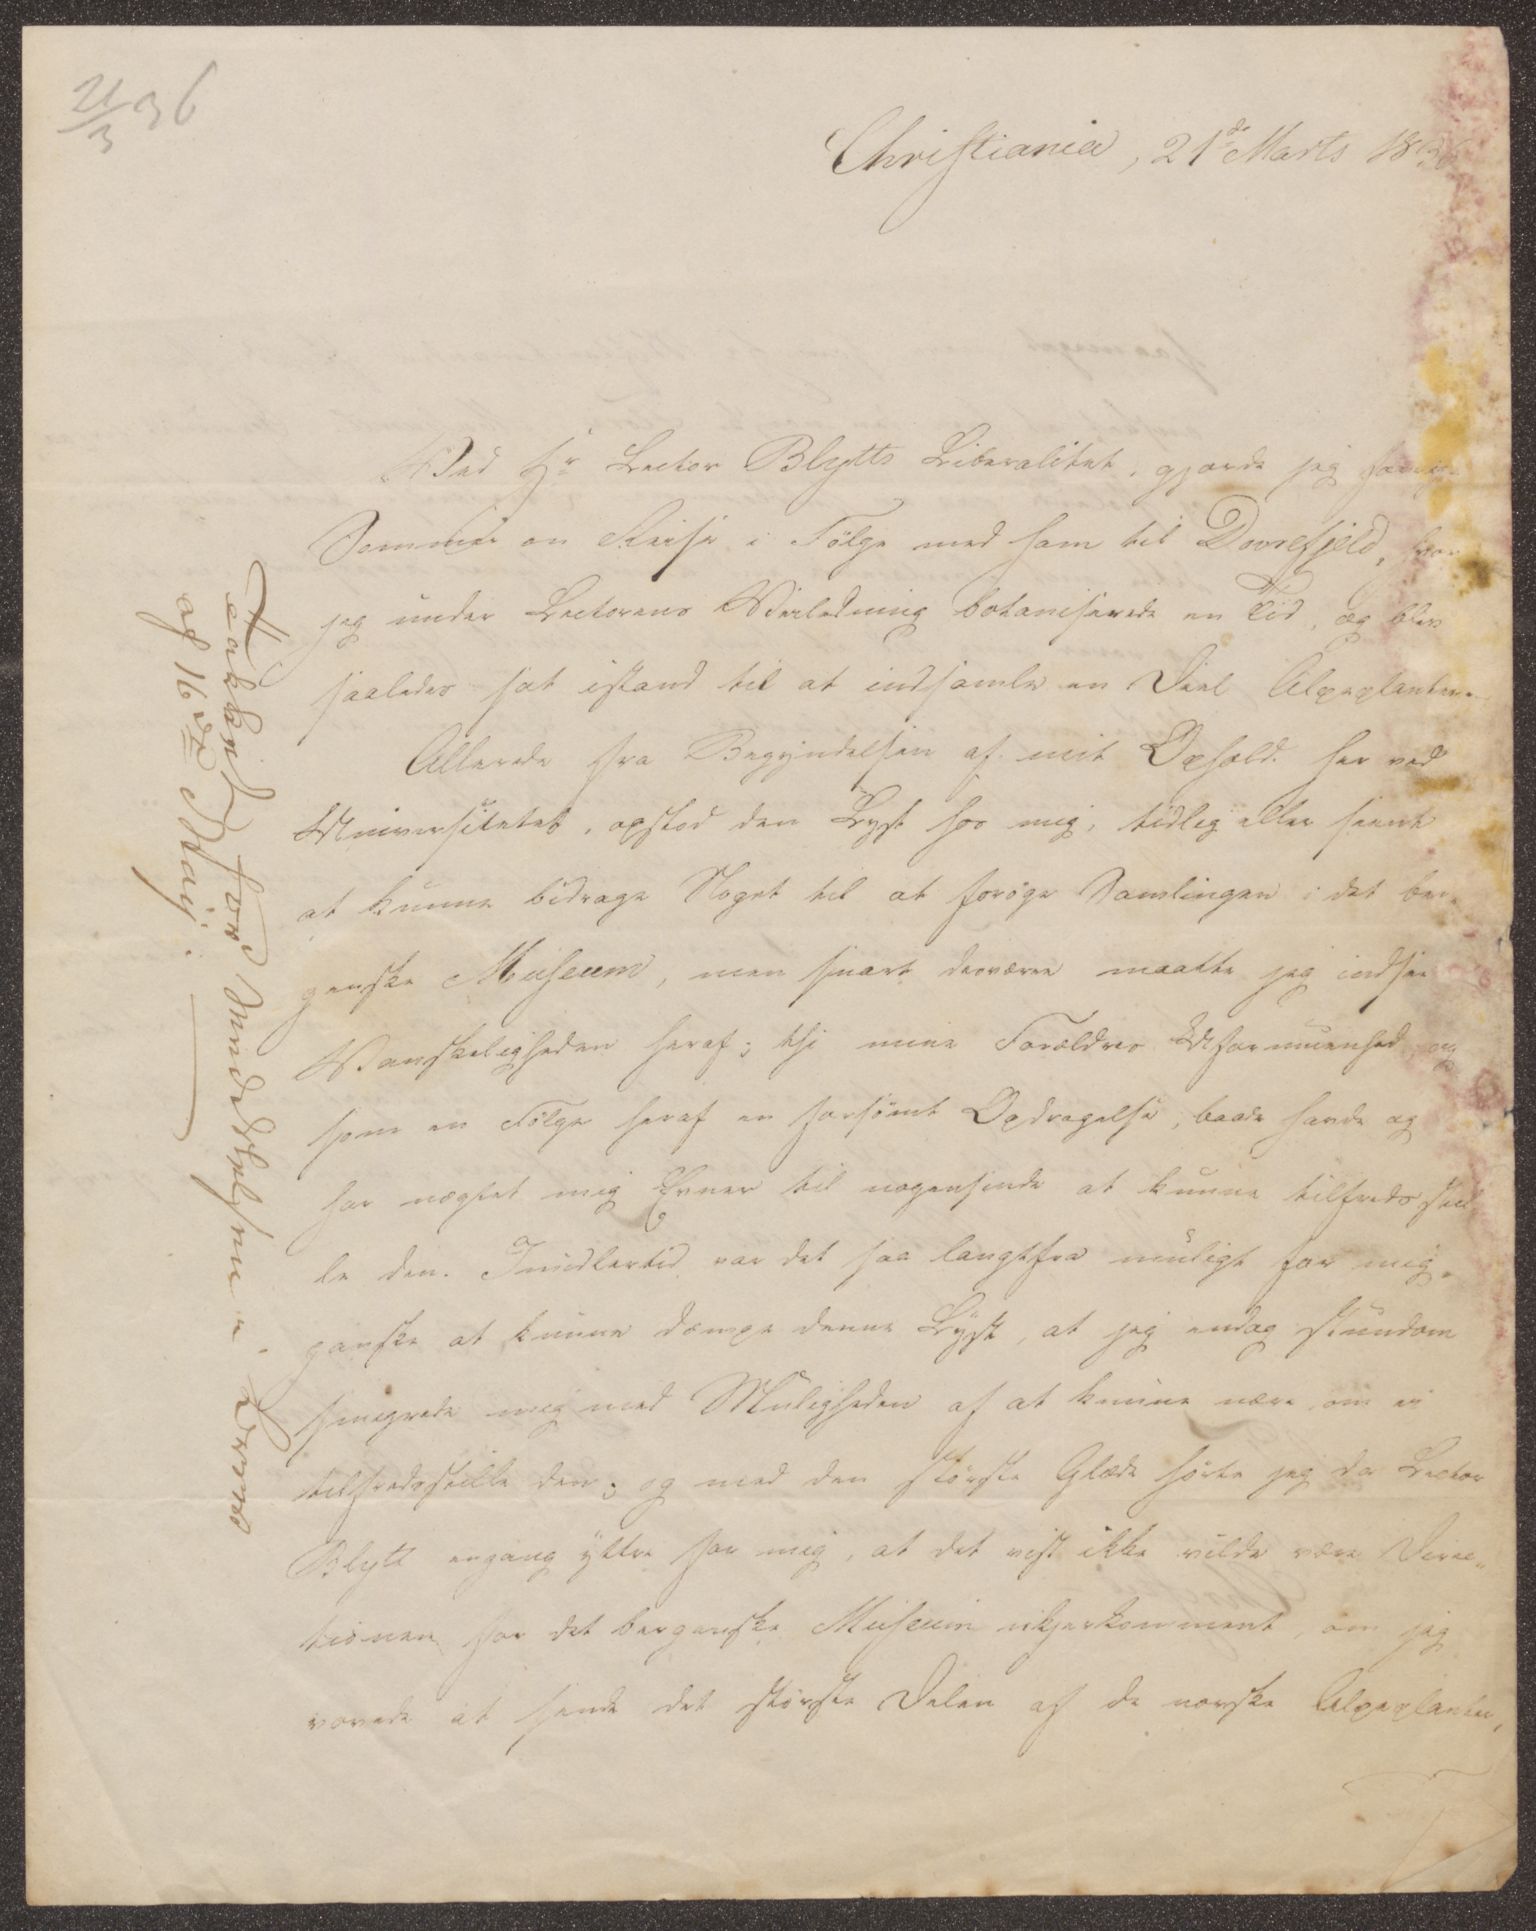 21/3 36
Christiania, 21de Marts 1836
Ved Hr Lector Blytts Liberalitet, gjorde jeg forrige
Sommer en Reise i Følge med ham til Dovrefjeld, hvor
jeg under Lectorens Veiledning botaniserede en Tid, og blev
saaledes sat istand til at indsamle en Deel Alpeplanter.
Allerede fra Begyndelsen af mit Ophold her ved
Universitetet, opstod den Lyst hos mig, tidlig eller seent
at kunne bidrage Noget til at forøge Samlingen i det ber-
genske Museum, men snart desværre maatte jeg indsee
Vanskeligheden heraf; thi mine Forældres Uformuenhed og
som en Følge heraf en forsømt Opdragelse, baade havde og
har nægtet mig Evner til nogensinde at kunne tilfredsstil
le den. Imidlertid var det saa langtfra muligt for mig,
ganske at kunne dæmpe denne Lyst, at jeg endog stundom
smigrede mig med Muligheden af at kunne være om ei
tilfredsstille den; og med den største Glæde hørte jeg da Lector
Blytt engang yttre for mig, at det vist ikke vilde være Direc-
tionen for det bergenske Museum ukjærkomment, om jeg
vovede at sende det største Delen af de norske Alpeplanter,
Takket for
af 16de Maij.